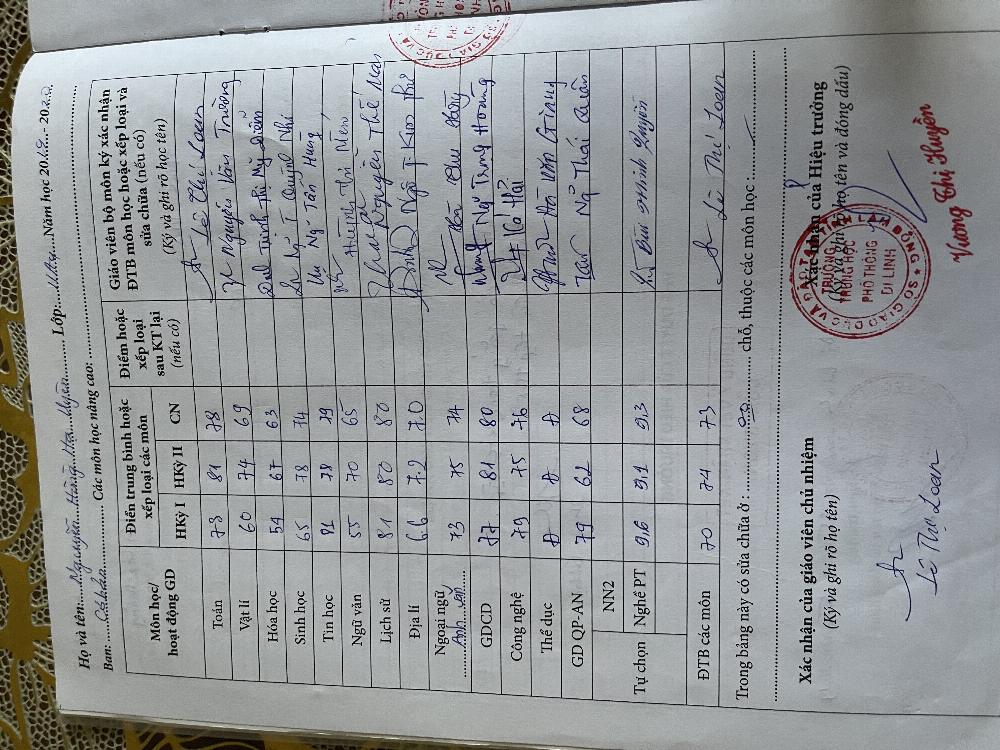 Họ và tên: Nguyễn Hồng Hà Uyên Lớp: Năm học 2019 - 2020
Ban: Cơ bản Các môn học nâng cao:
Môn học/ hoạt động GD
Điểm trung bình hoặc xếp loại các môn
HKỳ I HKỳ II CN
Điểm hoặc xếp loại sau KT lại (nếu có)
Giáo viên bộ môn ký xác nhận ĐTB môn học hoặc xếp loại và sửa chữa (nếu có)
(Ký và ghi rõ họ tên)
Toán 73 81 78 Lê Thị Loan
Vật lí 60 74 69 Nguyễn Văn Trương
Hóa học 54 67 63 Trịnh Thị Mỹ Diễm
Sinh học 65 78 74 Ng T Quỳnh Như
Tin học 81 78 79 Ng Tấn Hùng
Ngữ văn 55 70 65 Huỳnh Thị Mến
Lịch sử 81 80 80 Nguyễn Thế Nam
Địa lí 66 7.2 7.0 Ngô T Kim
Ngoại ngữ Anh văn 73 75 74
GDCD 77 81 80 Ng Trung Hoàng
Công nghệ 79 75 76
Thể dục Đ Đ Đ Hà Văn Giang
GD QP-AN 79 62 68 Ng Thái
Tự chọn
NN2
Nghề PT 9.6 9.1 9.3 Bùi Minh
ĐTB các môn 70 74 73 Lê Thị Loan
Trong bảng này có sửa chữa ở : chỗ, thuộc các môn học :
Xác nhận của giáo viên chủ nhiệm
(Ký và ghi rõ họ tên)
Lê Thị Loan
Xác nhận của Hiệu trưởng
(Ký và ghi rõ họ tên và đóng dấu)
TRƯỜNG
TRUNG HỌC
PHỔ THÔNG
DI LINH
Vương Thị Huyền